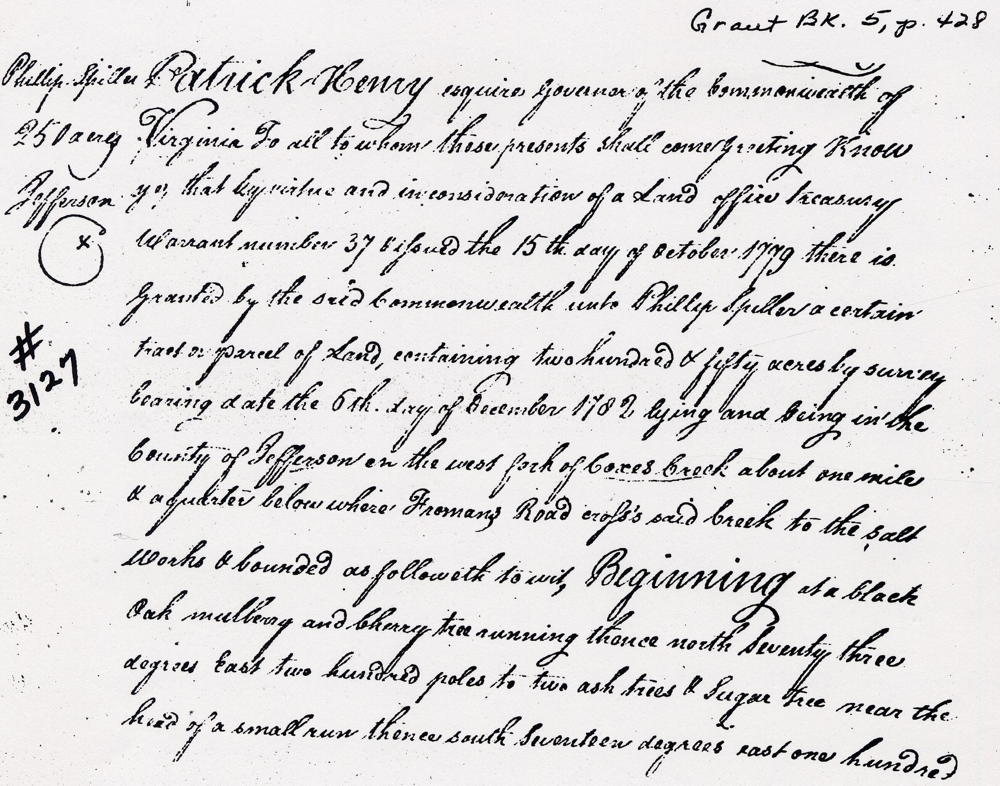 Grant Bk. 5, p. 428
Phillip Spiller
250 acres
Jefferson
x
#
3127
Patrick Henry esquire Governor of the Commonwealth of
Virginia To all to whom these presents shall come Greeting Know
ye, that by virtue and in consideration of a Land office treasury
Warrant number 376 issued the 15th day of October 1779 there is
Granted by the said Commonwealth unto Phillip Spiller a certain
tract or parcel of Land, containing two hundred & fifty acres by survey
bearing date the 6th. day of December 1782 lying and being in the
County of Jefferson on the west fork of Coxes Creek about one mile
& a quarter below where Fromans Road cross's said Creek to the salt
Works & bounded as followeth to wit, Beginning at a black
Oak mulberry and Cherry tree running thence north Seventy three
degrees East two hundred poles to two ash trees & Sugar tree near the
head of a small run thence south Seventeen degrees east one hundred